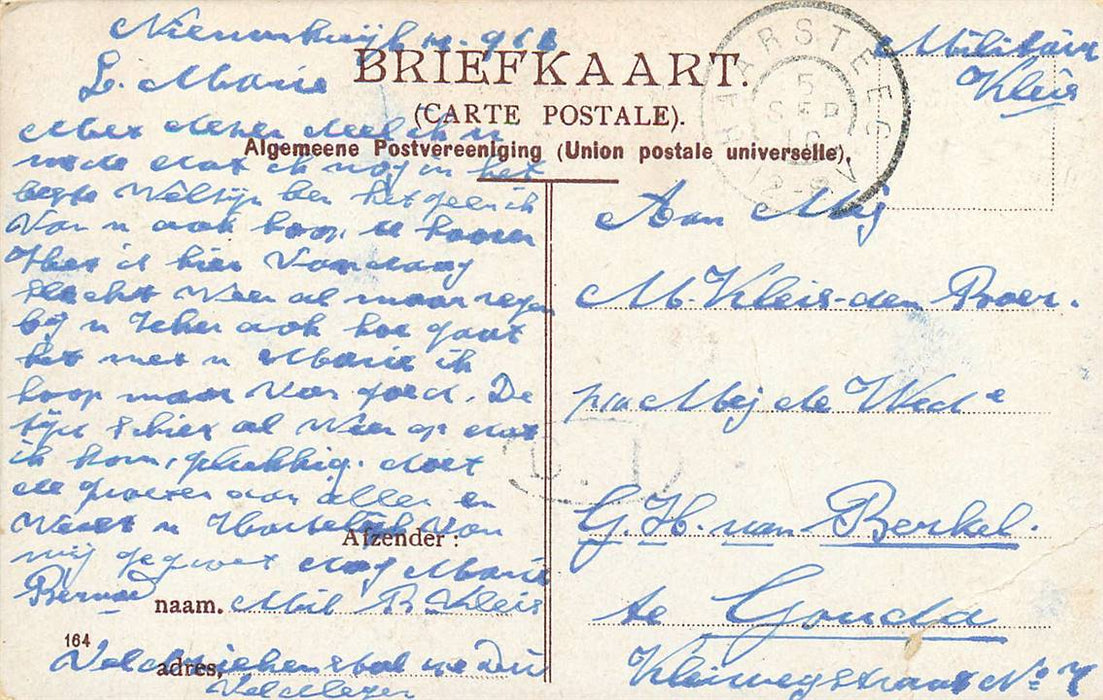 Nieuwkuijk
BRIEFKAART.
L. Marie
(CARTE POSTALE).
Algemeene Postvereeniging (Union postale universelle).
Met dezen deel ik u
mede dat ik nog in het
beste Welzijn ben hetgeen ik
Van u ook hoop te hooren
Het is hier Vandaag
slecht Weer al maar regen
bij u Zeker ook hoe gaat
het met u Marie ik
hoop maar Van goed. De
tijd schiet al Weer op dat
ik kom, gelukkig. doet
de groeten aan allen en
Weest u Hartelijk Van
mij gegroet dag Marie
Bernard
Afzender:
naam. Mil B. Kleis
164
adres,
Militair
Kleis
HAARSTEEG
5
SEP
12-8V
Aan Mej
M. Kleis-den Boer.
p/a Mej de Wed e
G. H. van Berkel.
te Gouda
Kleiwegstraat No 7